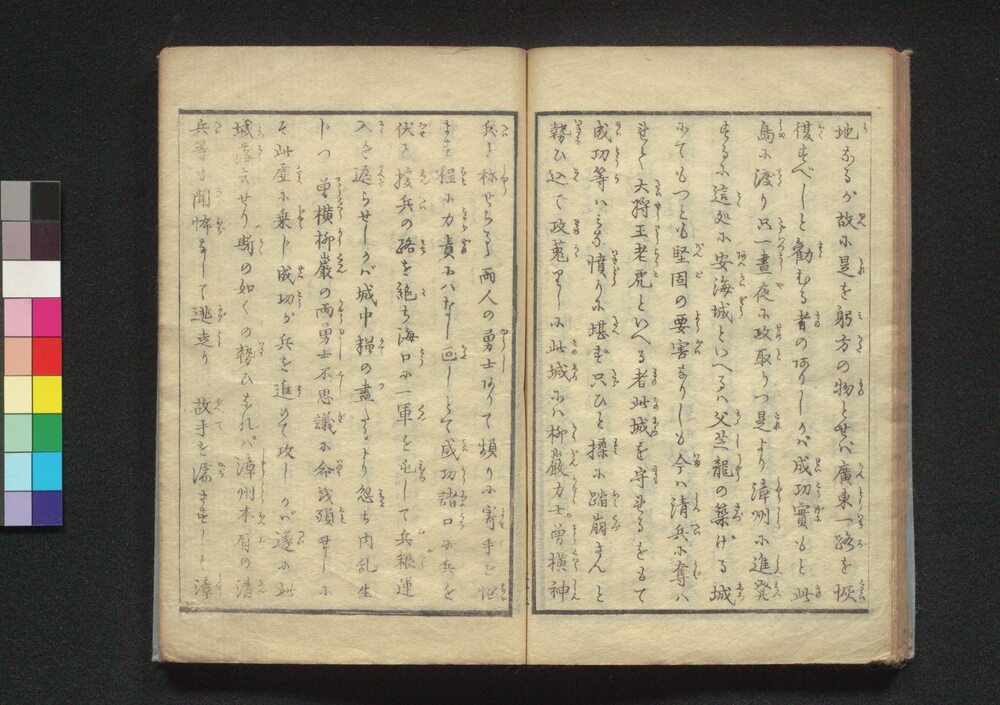 地なるが故に是を躬方の物とせバ廣東一路を恢
復すべしと勸むる者のありしかバ成功實もと此
島に渡り只一晝夜に攻取りつ是より漳州に進発
するに這処に安海城といへるハ父芝龍の築ける城
にてもつとも堅固の要害なりしも今ハ清兵に奪ハ
れて大将王老虎といへる者此城を守れるをもて
成功等ハミな憤りに堪ず只ひと揉に踏崩さんと
勢ひ込で攻蒐りしに此城にハ柳巖力士曽横神
兵と称せらるゝ両人の勇士ありて頻りに寄手を悩
ませ程に力責にハなし回しとて成功諸口に兵を
伏て援兵の路を絶ち海口に一軍を屯して兵粮運
入を遮らせしかバ城中糧の盡たるより忽ち内乱生
じつ曽横柳巖の両勇士不思議に命を殞せしに
ぞ此虚に乗じ成功が兵を進めて攻しかバ遂に此
城落去せり斯の如くの勢ひなれバ漳州本府の清
兵等は聞怖なして逃走り故手を濡さずして漳